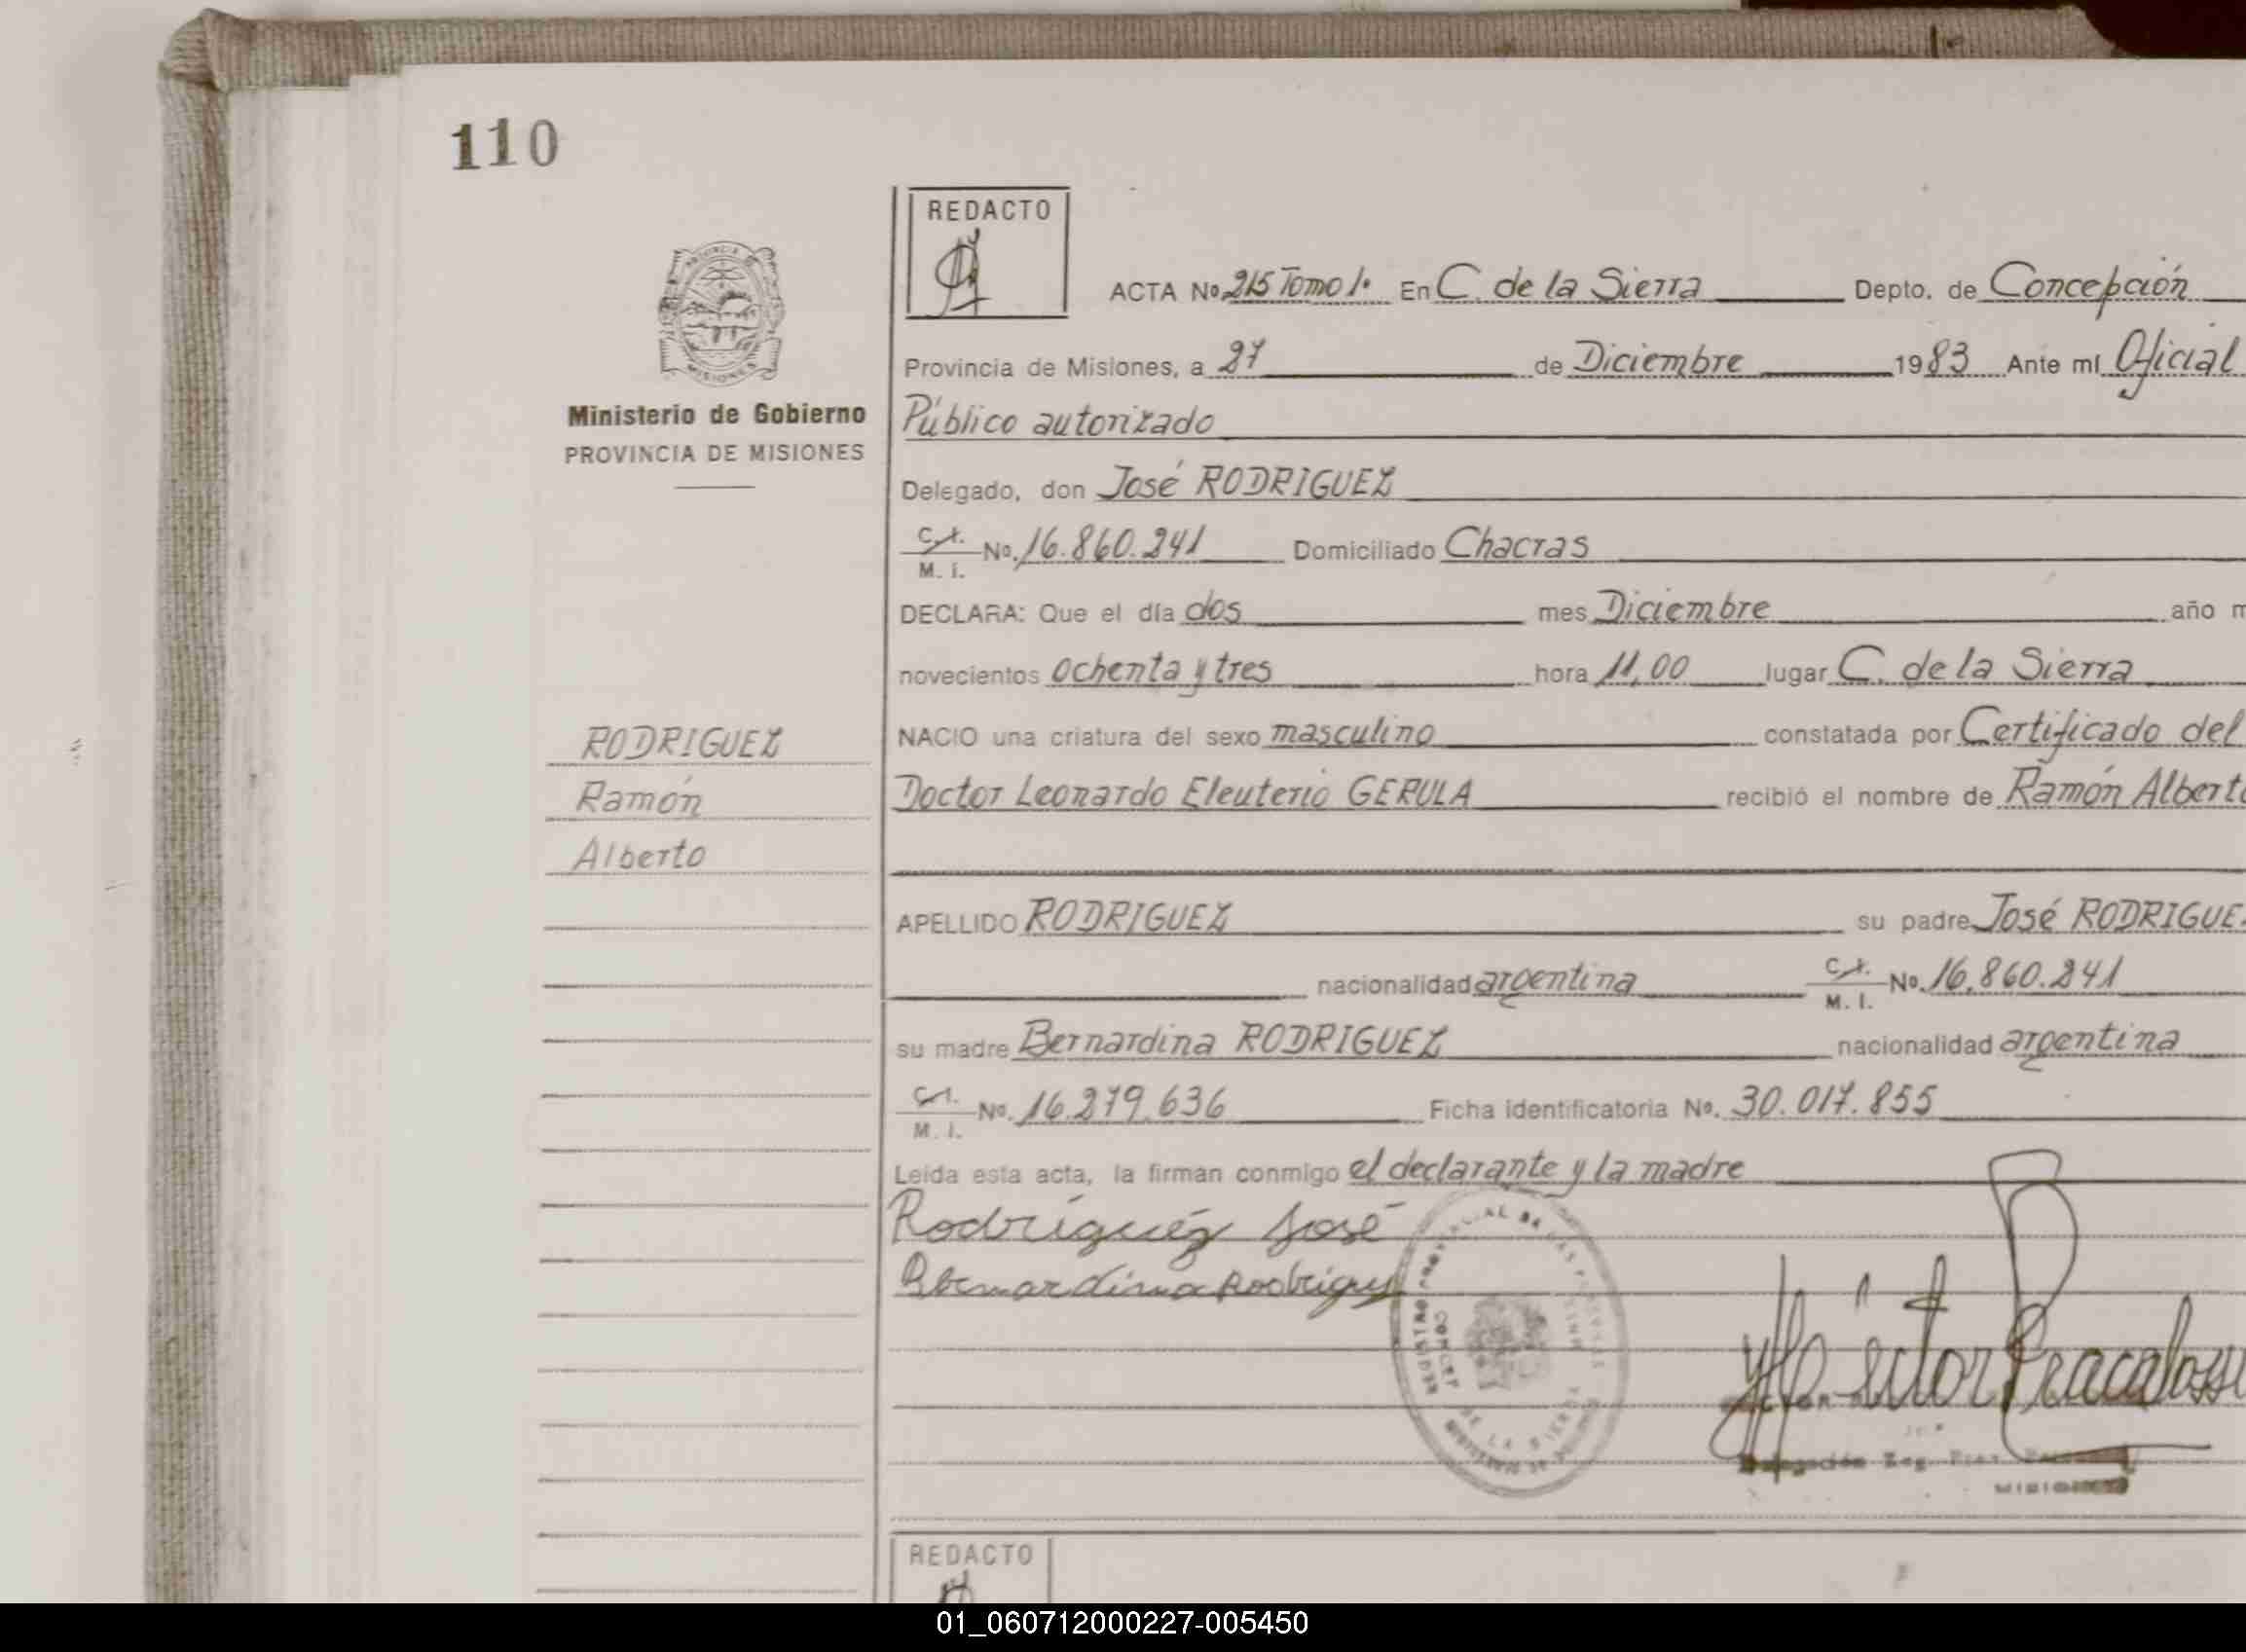 110
REDACTO
ACTA No. 215 Tomo 1° En C. de la Sierra Depto. de Concepción
Ministerio de Gobierno
PROVINCIA DE MISIONES
Provincia de Misiones, a 27 de Diciembre 1983 Ante mí Oficial
Público autorizado
Delegado, don José RODRIGUEZ
C. I. M. I. No. 16.860.241 Domiciliado Chacras
DECLARA: Que el día dos mes Diciembre año m
novecientos ochenta y tres hora 11,00 lugar C. de la Sierra
RODRIGUEZ
Ramón
Alberto
NACIO una criatura del sexo masculino constatada por Certificado del
Doctor Leonardo Eleuterio GERULA recibió el nombre de Ramón Alberto
APELLIDO RODRIGUEZ su padre José RODRIGUEZ
nacionalidad argentina C. I. M. I. No. 16.860.241
su madre Bernardina RODRIGUEZ nacionalidad argentina
C. I. M. I. No. 16.279.636 Ficha identificatoria No. 30.017.855
Leida esta acta, la firman conmigo el declarante y la madre
Rodríguéz José
Bernardina Rodrigu
DE LA SIERRA
REDACTO
01_060712000227-005450